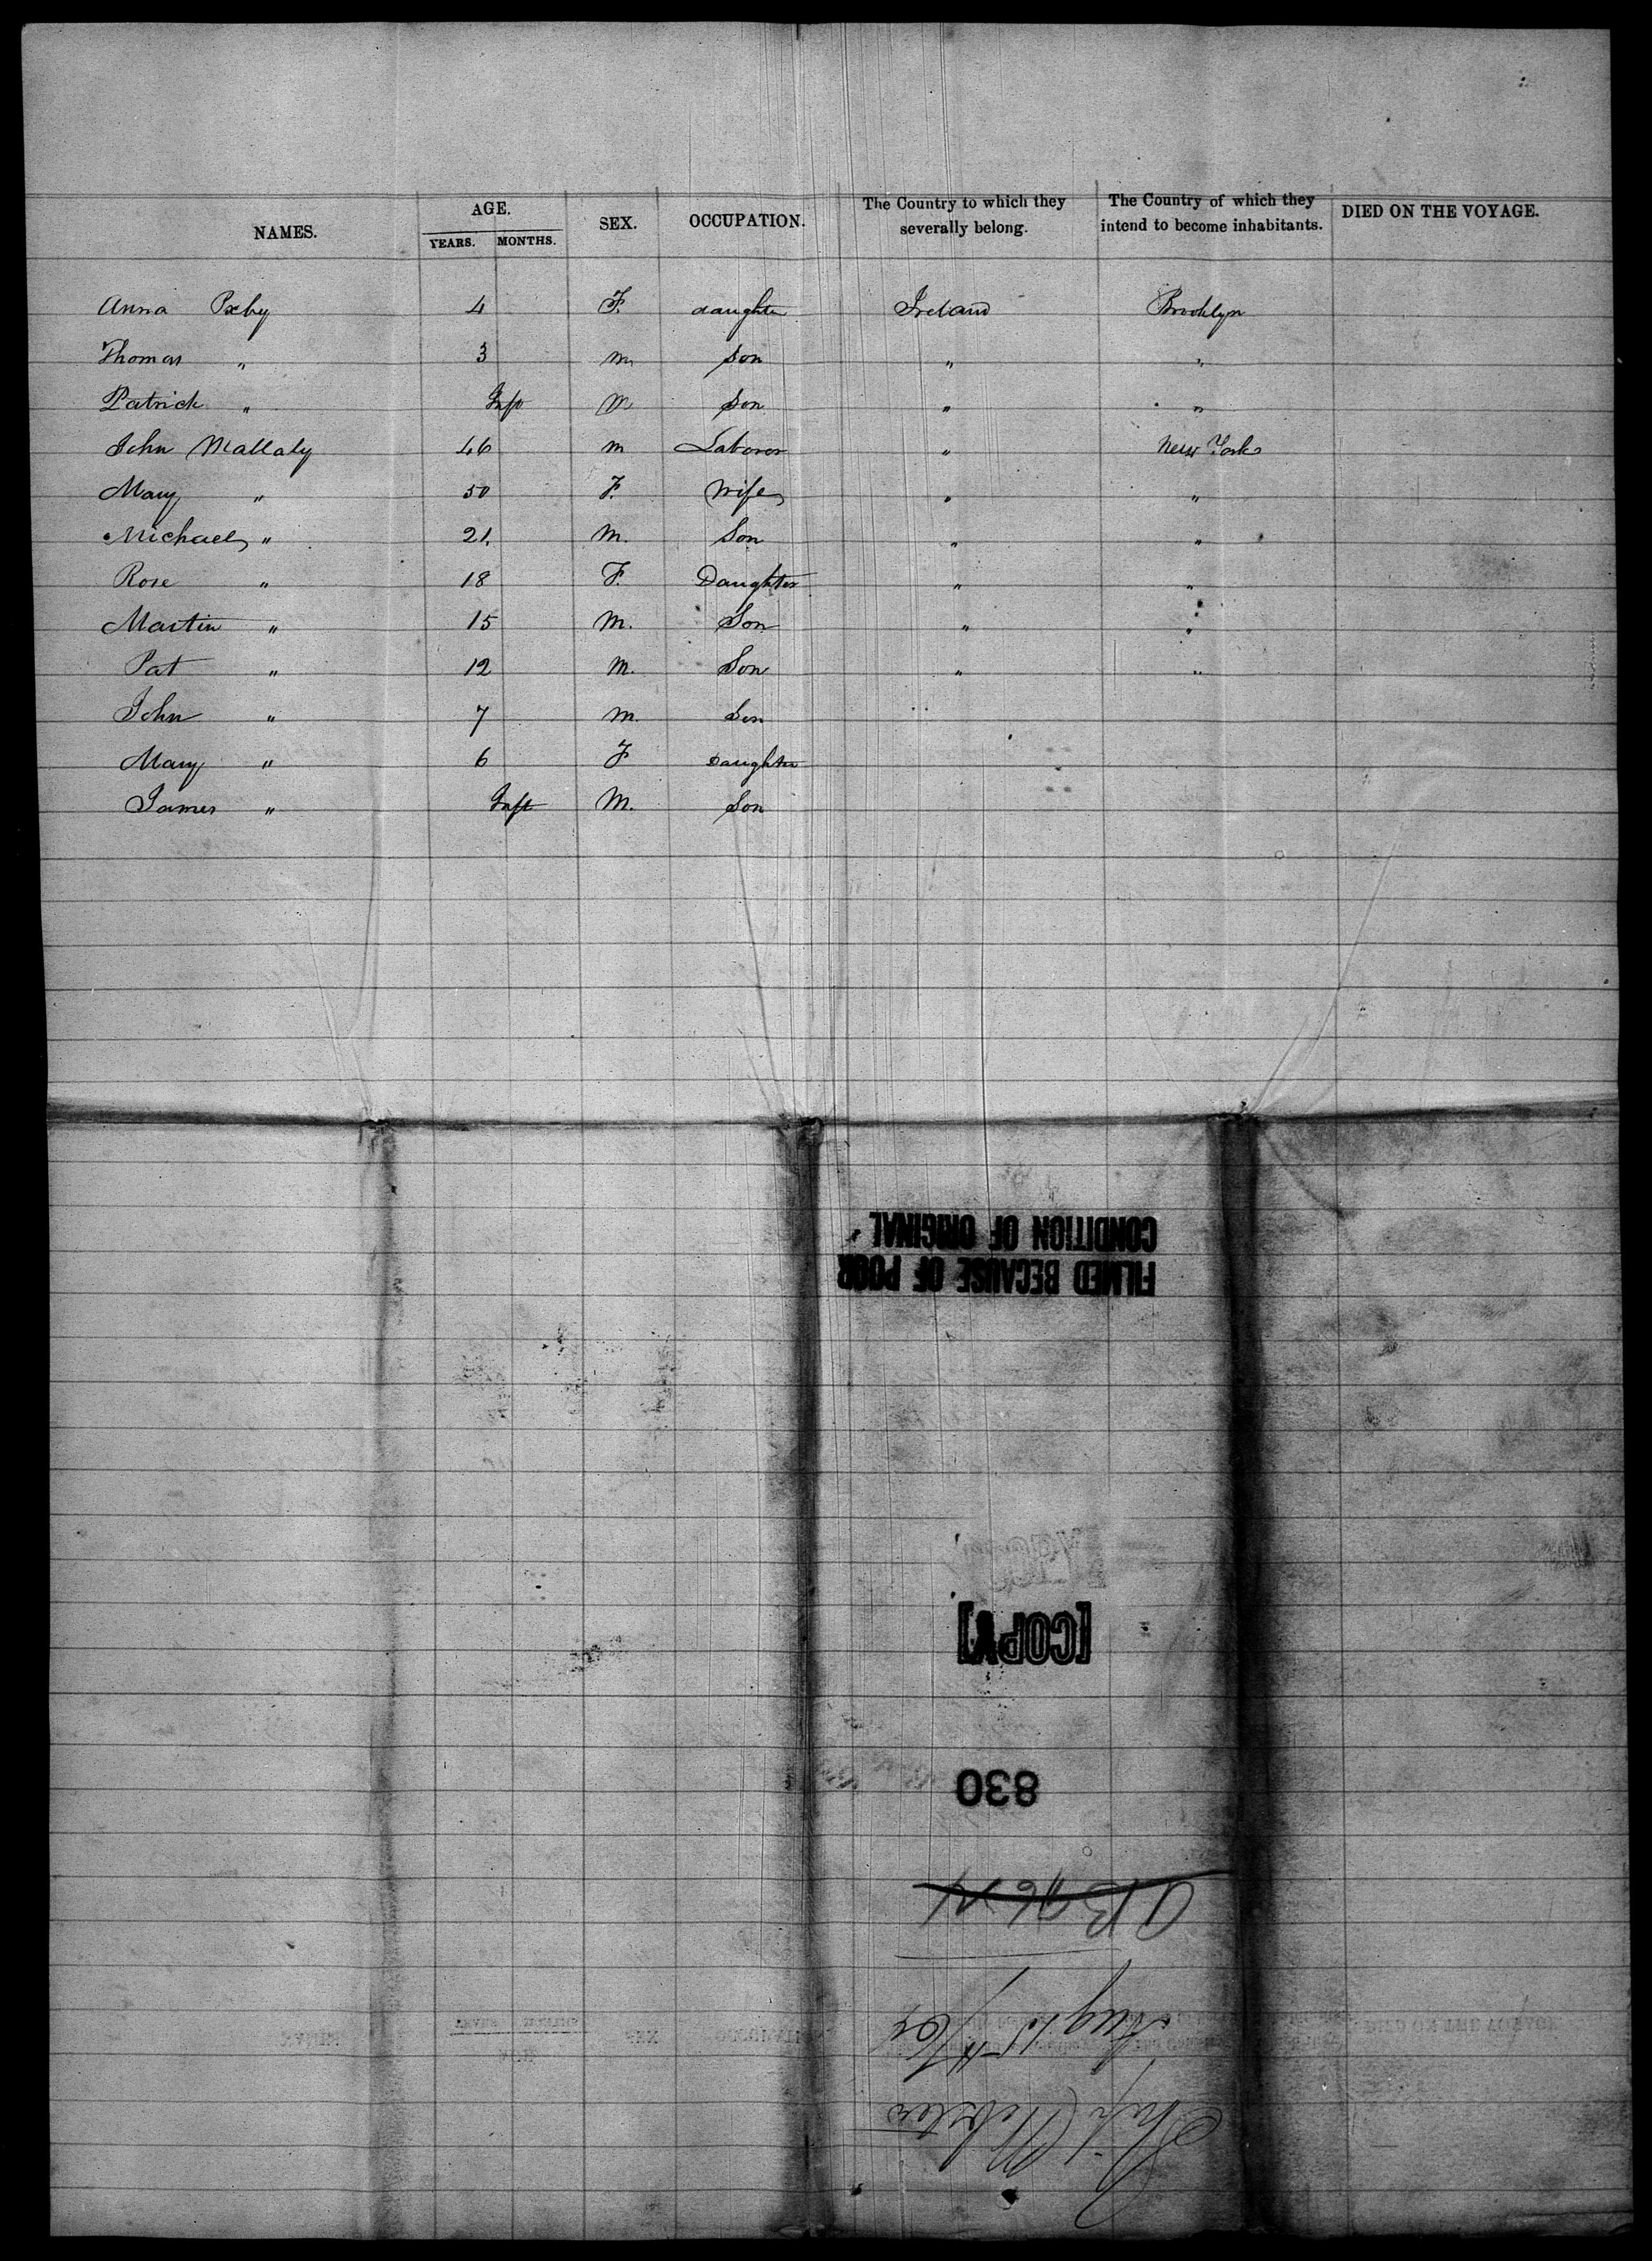 NAMES. AGE. YEARS. MONTHS. SEX. OCCUPATION. The Country to which they severally belong. The Country of which they intend to become inhabitants. DIED ON THE VOYAGE.
Anna 4 F. daughter Ireland Brooklyn
Thomas " 3 m son " "
Patrick " Inft m son " "
John Mallaly 46 m Laborer " New York
Mary " 50 F. Wife " "
Michael " 21. M. Son " "
Rose " 18 F. Daughter " "
Martin " 15 M. Son " "
Pat " 12 M. Son " "
John " 7 M. Son
Mary " 6 F Daughter
James " Inft M. Son
FILMED BECAUSE OF POOR
CONDITION OF ORIGINAL
[COPY]
830
Ship Webster
Aug 15th/62